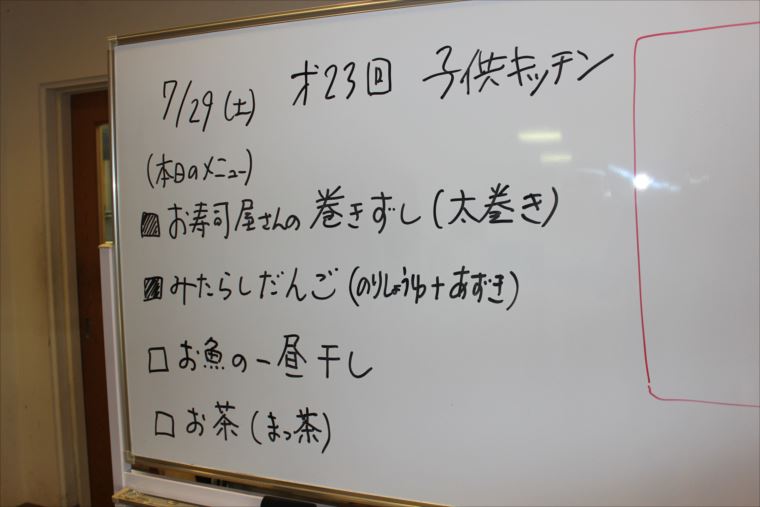 7/29(土) 才23回 子供キッチン
(本日のメニュー)
お寿司屋さんの巻きずし(太巻き)
みたらしだんご(のりしょうゆ+あずき)
□お魚の一昼干し
□お茶(まっ茶)